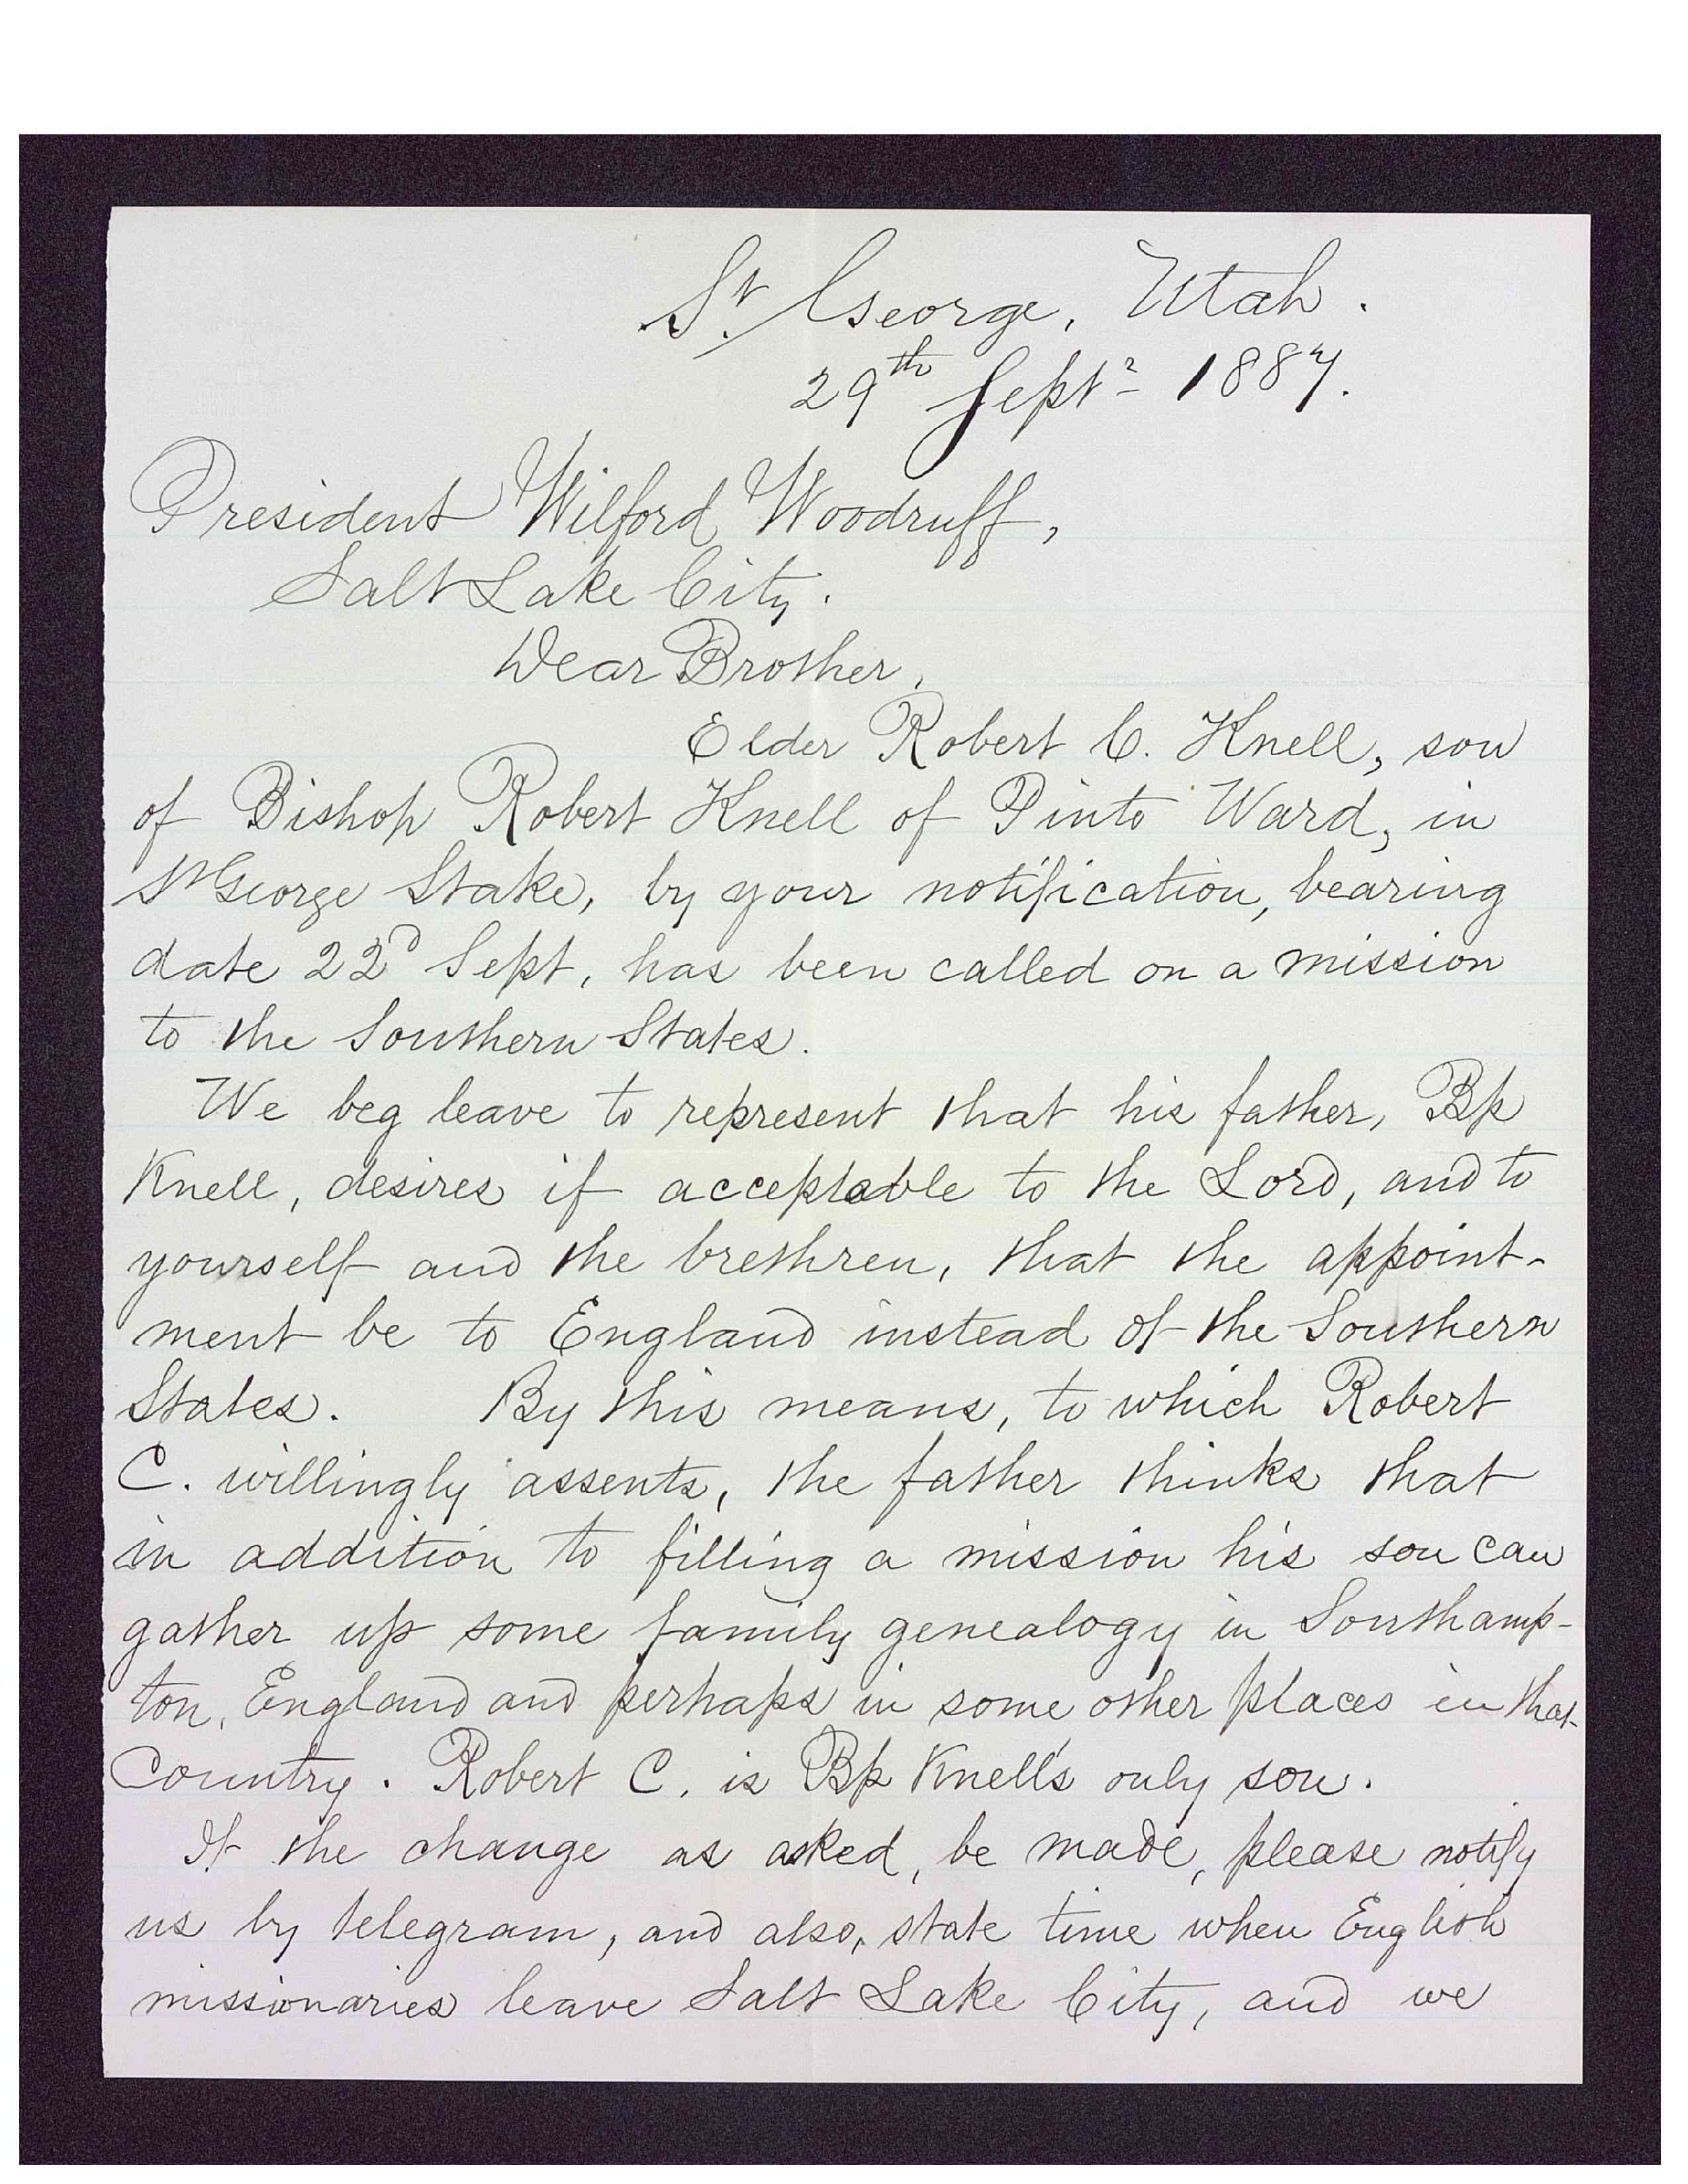 St. George, Utah.
29th Sept. 1887.
President Wilford Woodruff,
Salt Lake City.
Dear Brother,
Elder Robert C. Knell, son
of Bishop Robert Knell of Pinto Ward, in
St George Stake, by your notification, bearing
date 22d Sept, has been called on a mission
to the Southern States.
We beg leave to represent that his father, Bp
Knell, desires if acceptable to the Lord, and to
yourself and the brethren, that the appoint-
ment be to England instead of the Southern
States. By this means, to which Robert
C. willingly assents, the father thinks that
in addition to filling a mission his son can
gather up some family genealogy in Southamp-
ton, England and perhaps in some other places in that
Country. Robert C. is Bp Knell's only son.
If the change as asked, be made, please notify
us by telegram, and also, state time when English
missionaries leave Salt Lake City, and we